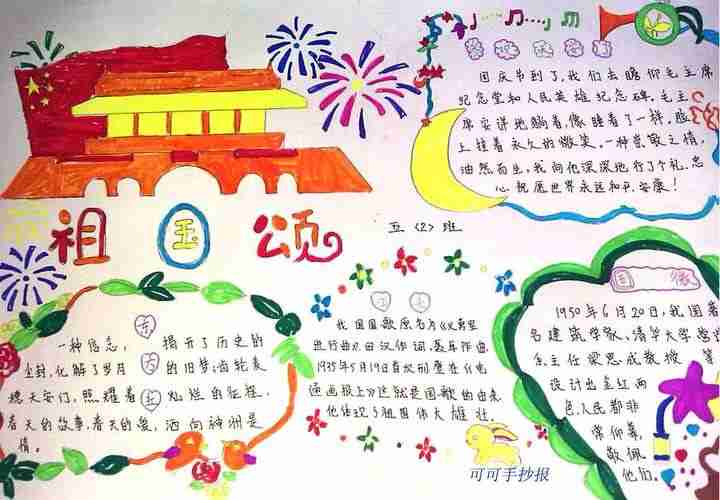 国庆节到了,我们去瞻仰毛主席
纪念堂和人民英雄纪念碑。毛主
席安详地躺着,像睡着了一样,脸
上挂着永久的微笑。一种崇敬之情,
油然而生,我向他深深地行了个礼。忠
心祝愿世界永远和平,安康!
祖国颂
五〈2〉班
一种信念,
揭开了历史的
尘封,化解了岁月
的旧梦;齿轮麦
穗天安门,照耀着
灿烂的征程,
春天的故事,春天的爱,洒向神洲是
情。
我国国歌原名为《义勇军
进行曲》。田汉作词,聂耳作曲
1935年5月19日首次刊
这就是国歌的由来
他体现了祖国伟大雄壮
国徽
1950年6月20日,我国著
名建筑学家、清华大学
系主任梁思成教授
设计出金红两
色,人民都非
常仰慕,
敬佩
他们。
可可手抄报